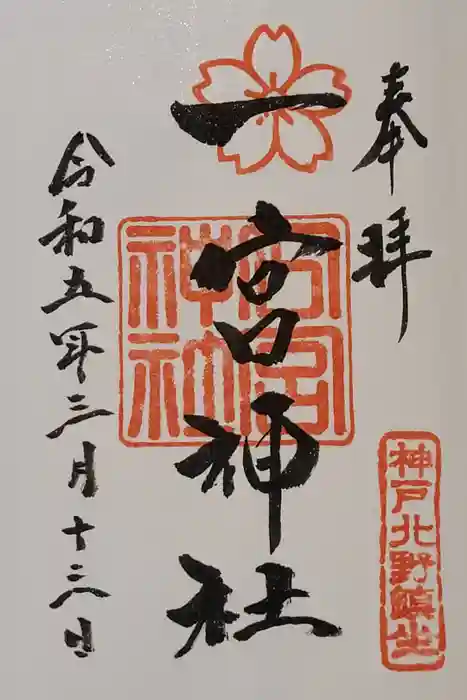 奉拝
神戸北野鎮坐
一宮神社
神社
令和五年三月十三日